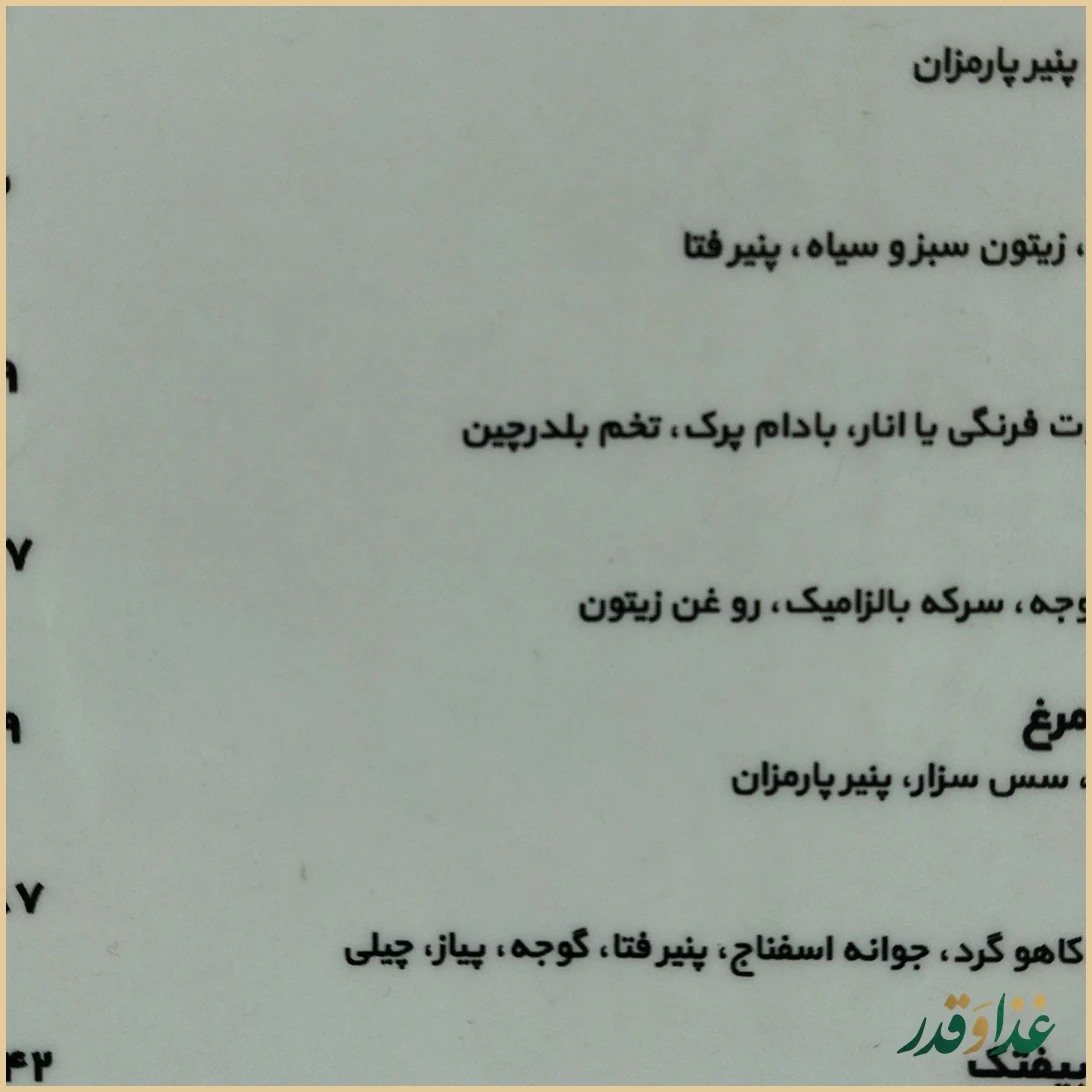 پنیر پارمزان
، زیتون سبز و سیاه، پنیر فتا
فرنگی یا انار، بادام پرک، تخم بلدرچین
۷
سرکه بالزامیک، رو غن زیتون
مرغ
، سس سزار، پنیر پارمزان
۷
کاهو گرد، جوانه اسفناج، پنیر فتا، گوجه، پیاز، چیلی
غذا و قدر
بیفتک
۴۲